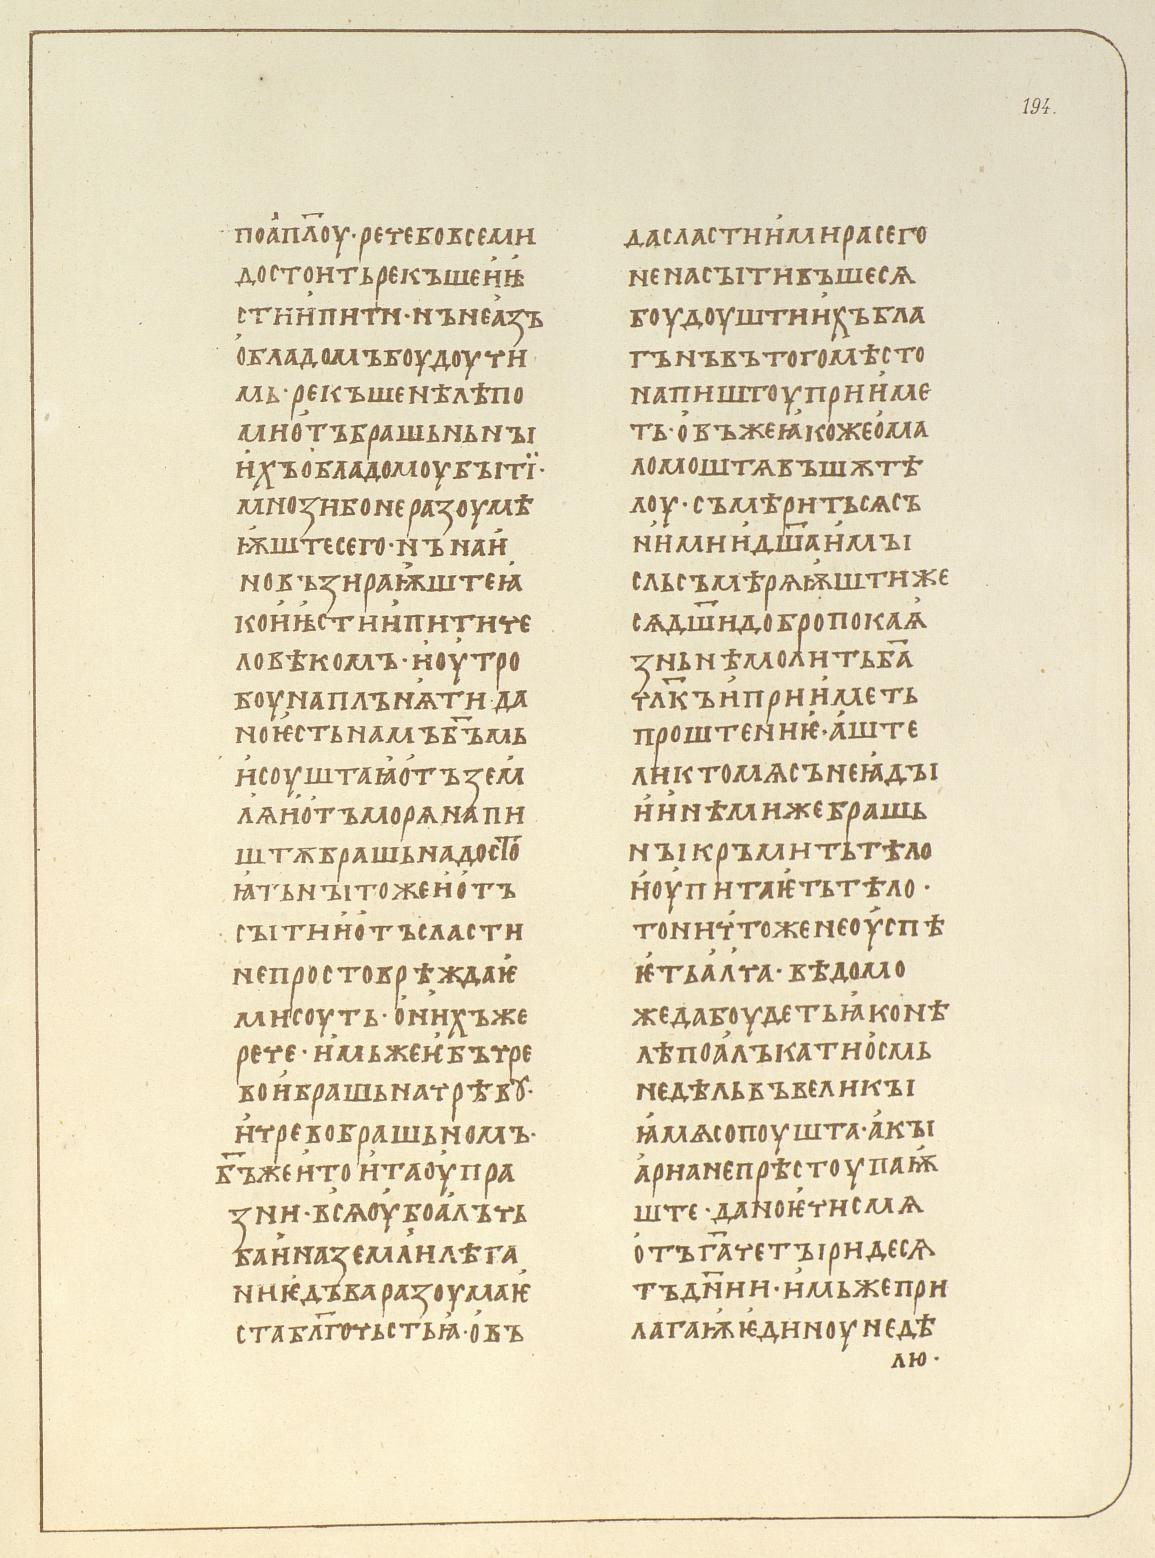 194.
поа҆пл҃оу·речебовсемн
достоить рекъшеи҆ꙗ҆
стии҆пити·нънеа҆зъ
о҆бладомъбоудоучи
мь·рекъшенѣлѣпо
мно҆тъбрашьньнꙑ
и҆хъо҆бладомоубꙑтї·
мнозибонеразоумѣ
ѭ҆штесего·нънаи҆
новъзираѭ҆штеꙗ҆
кои҆ꙗ҆стии҆питиче
ловѣкомъ·ноу҆тро
боунаплънѧти·да
ноѥ҆стьнамъб҃ъмь
и҆соуштаꙗ҆о҆тъзем
лѧи҆о҆тъморѧнапи
штѫбрашьнадосто
ꙗ҆тьнꙑтожеи҆о҆тъ
сꙑтии҆о҆тъсласти
непростоврѣждаѥ҆
мисоуть·о҆ни҆хъже
рече·и҆мьжеи҆бъчре
вои҆брашьначрѣвꙋ·
и҆чревобрашьномъ·
б҃ъжеи҆тои҆таоу҆пра
зни·всѧоу҆боа҆лъчь
баи҆наземлꙗ҆илѣга
ниѥ҆дъваразоумаѥ҆
стабл҃гочьстьꙗ҆·о҆въ
дасластии҆мирасего
ненасꙑтивъшесѧ
боудоуштии҆хъбла
гънъвътогомѣсто
напиштоуприи҆ме
ть·о҆въжеꙗ҆кожео҆ма
ломоштѧвъшѫтѣ
лоу·съмѣритьсѧсъ
ни҆мии҆дш҃аи҆мꙑ
сльсъмѣрѧѭ҆штиже
сѧдш҃идобропокаꙗ҆
зньнѣмолитьб҃а
чл҃къи҆прии҆меть
проштениѥ҆·а҆ште
ликтомѧсънеꙗ҆дꙑ
и҆и҆нѣмижебрашь
нꙑкръмитьтѣло
и҆оу҆питаѥ҆тьтѣло·
тоничтоженеоу҆спѣ
ѥ҆тьа҆лча·вѣдомо
жедабоудетьꙗ҆конѣ
лѣпоа҆лъкатио҆смь
недѣльвъвеликꙑ
ꙗ҆мѧсопоушта·а҆кꙑ
а҆рианепрѣстоупаѭ҆
ште·даноѥ҆чисмѧ
о҆тъг҃ачетꙑридесѧ
тъдн҃ии·и҆мьжепри
лагаѭ҆ѥ҆диноунедѣ
лю·